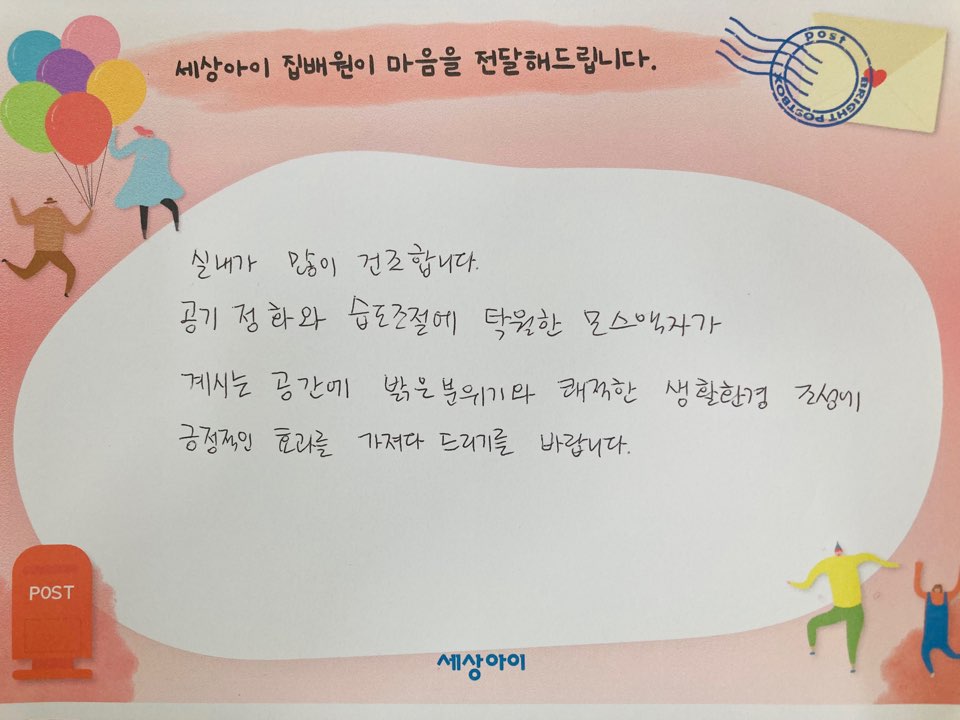 세상아이 집배원이 마음을 전달해드립니다.
post
BRIGHT POSTBOX
실내가 많이 건조합니다.
공기 정화와 습도조절에 탁월한 모스액자가
계시는 공간에 밝은분위기와 쾌적한 생활환경 조성에
긍정적인 효과를 가져다 드리기를 바랍니다.
POST
세상아이